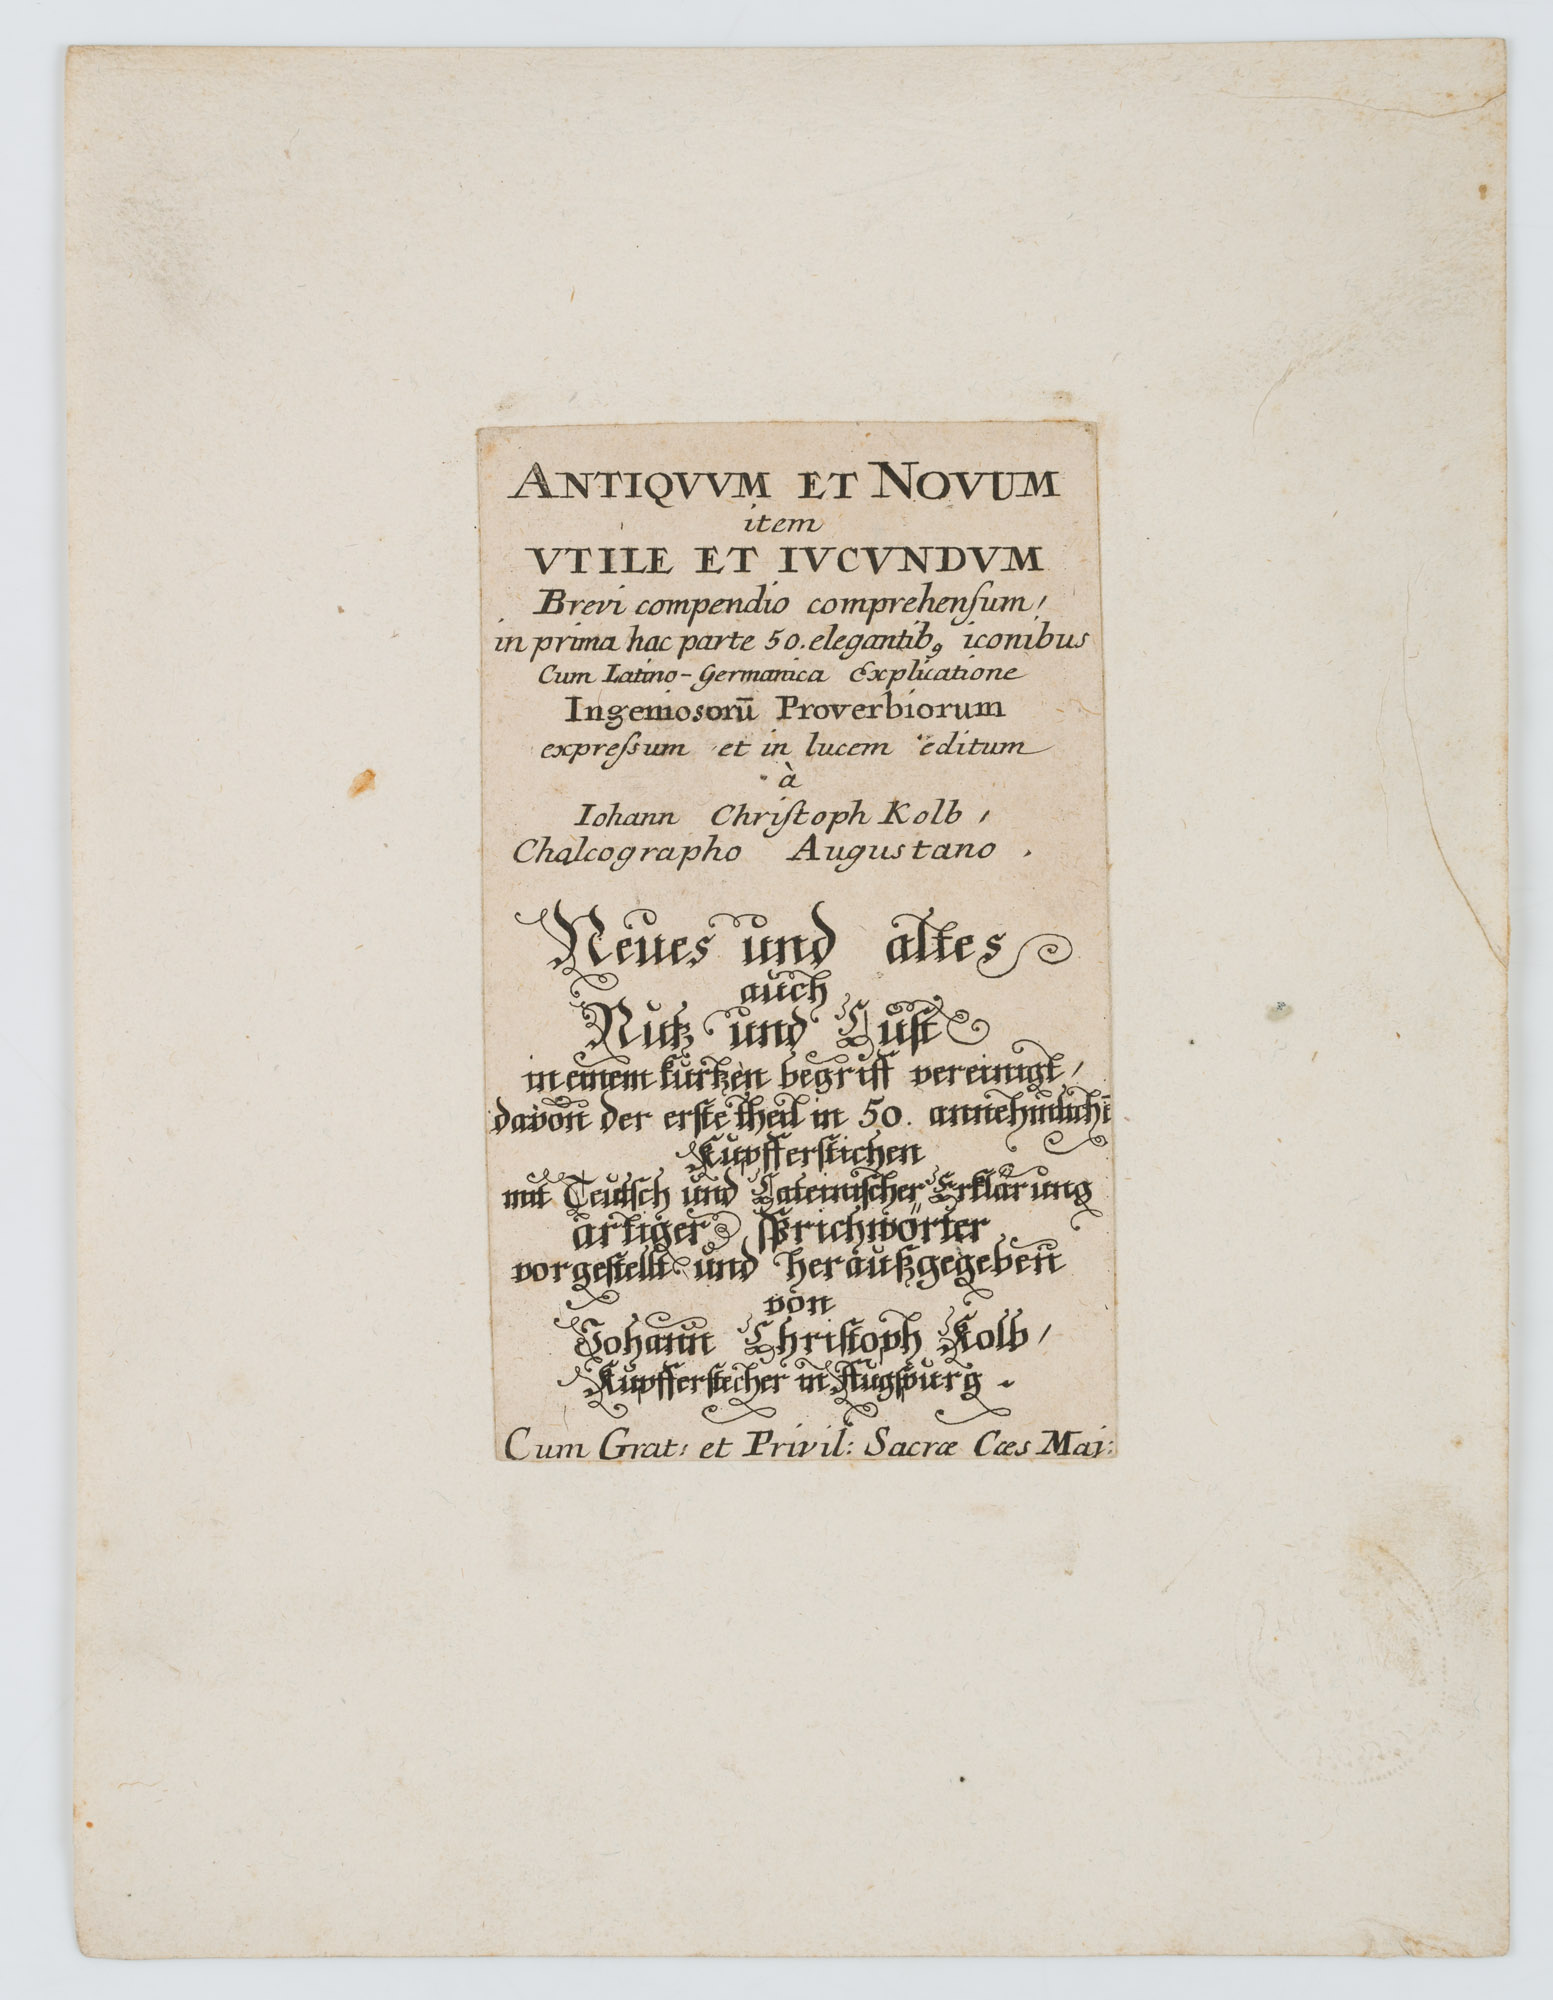 ANTIQVVM ET NOVUM
item
VTILE ET IVCVNDVM
Brevi compendio comprehenſum,
in prima hac parte 50. elegantib9 iconibus
Cum Latino-Germanica Explicatione
Ingeniosorū Proverbiorum
expreſsum et in lucem editum
à
Iohann Chriſtoph Kolb,
Chalcographo Augustano.
Neues und altes
auch
Nutz und Luſt
in einem kurtzen begriff vereinigt,
davon der erſte Theil in 50. annehmlichē
Kupfferſtichen
mit Teutſch und Lateiniſcher Erklärung
artiger ſprichwörter
vorgeſtellt und heraußgegeben
von
Johann Chriſtoph Kolb,
Kupfferſtecher in Augſpurg.
Cum Grat: et Privil: Sacræ Cæs Maj: